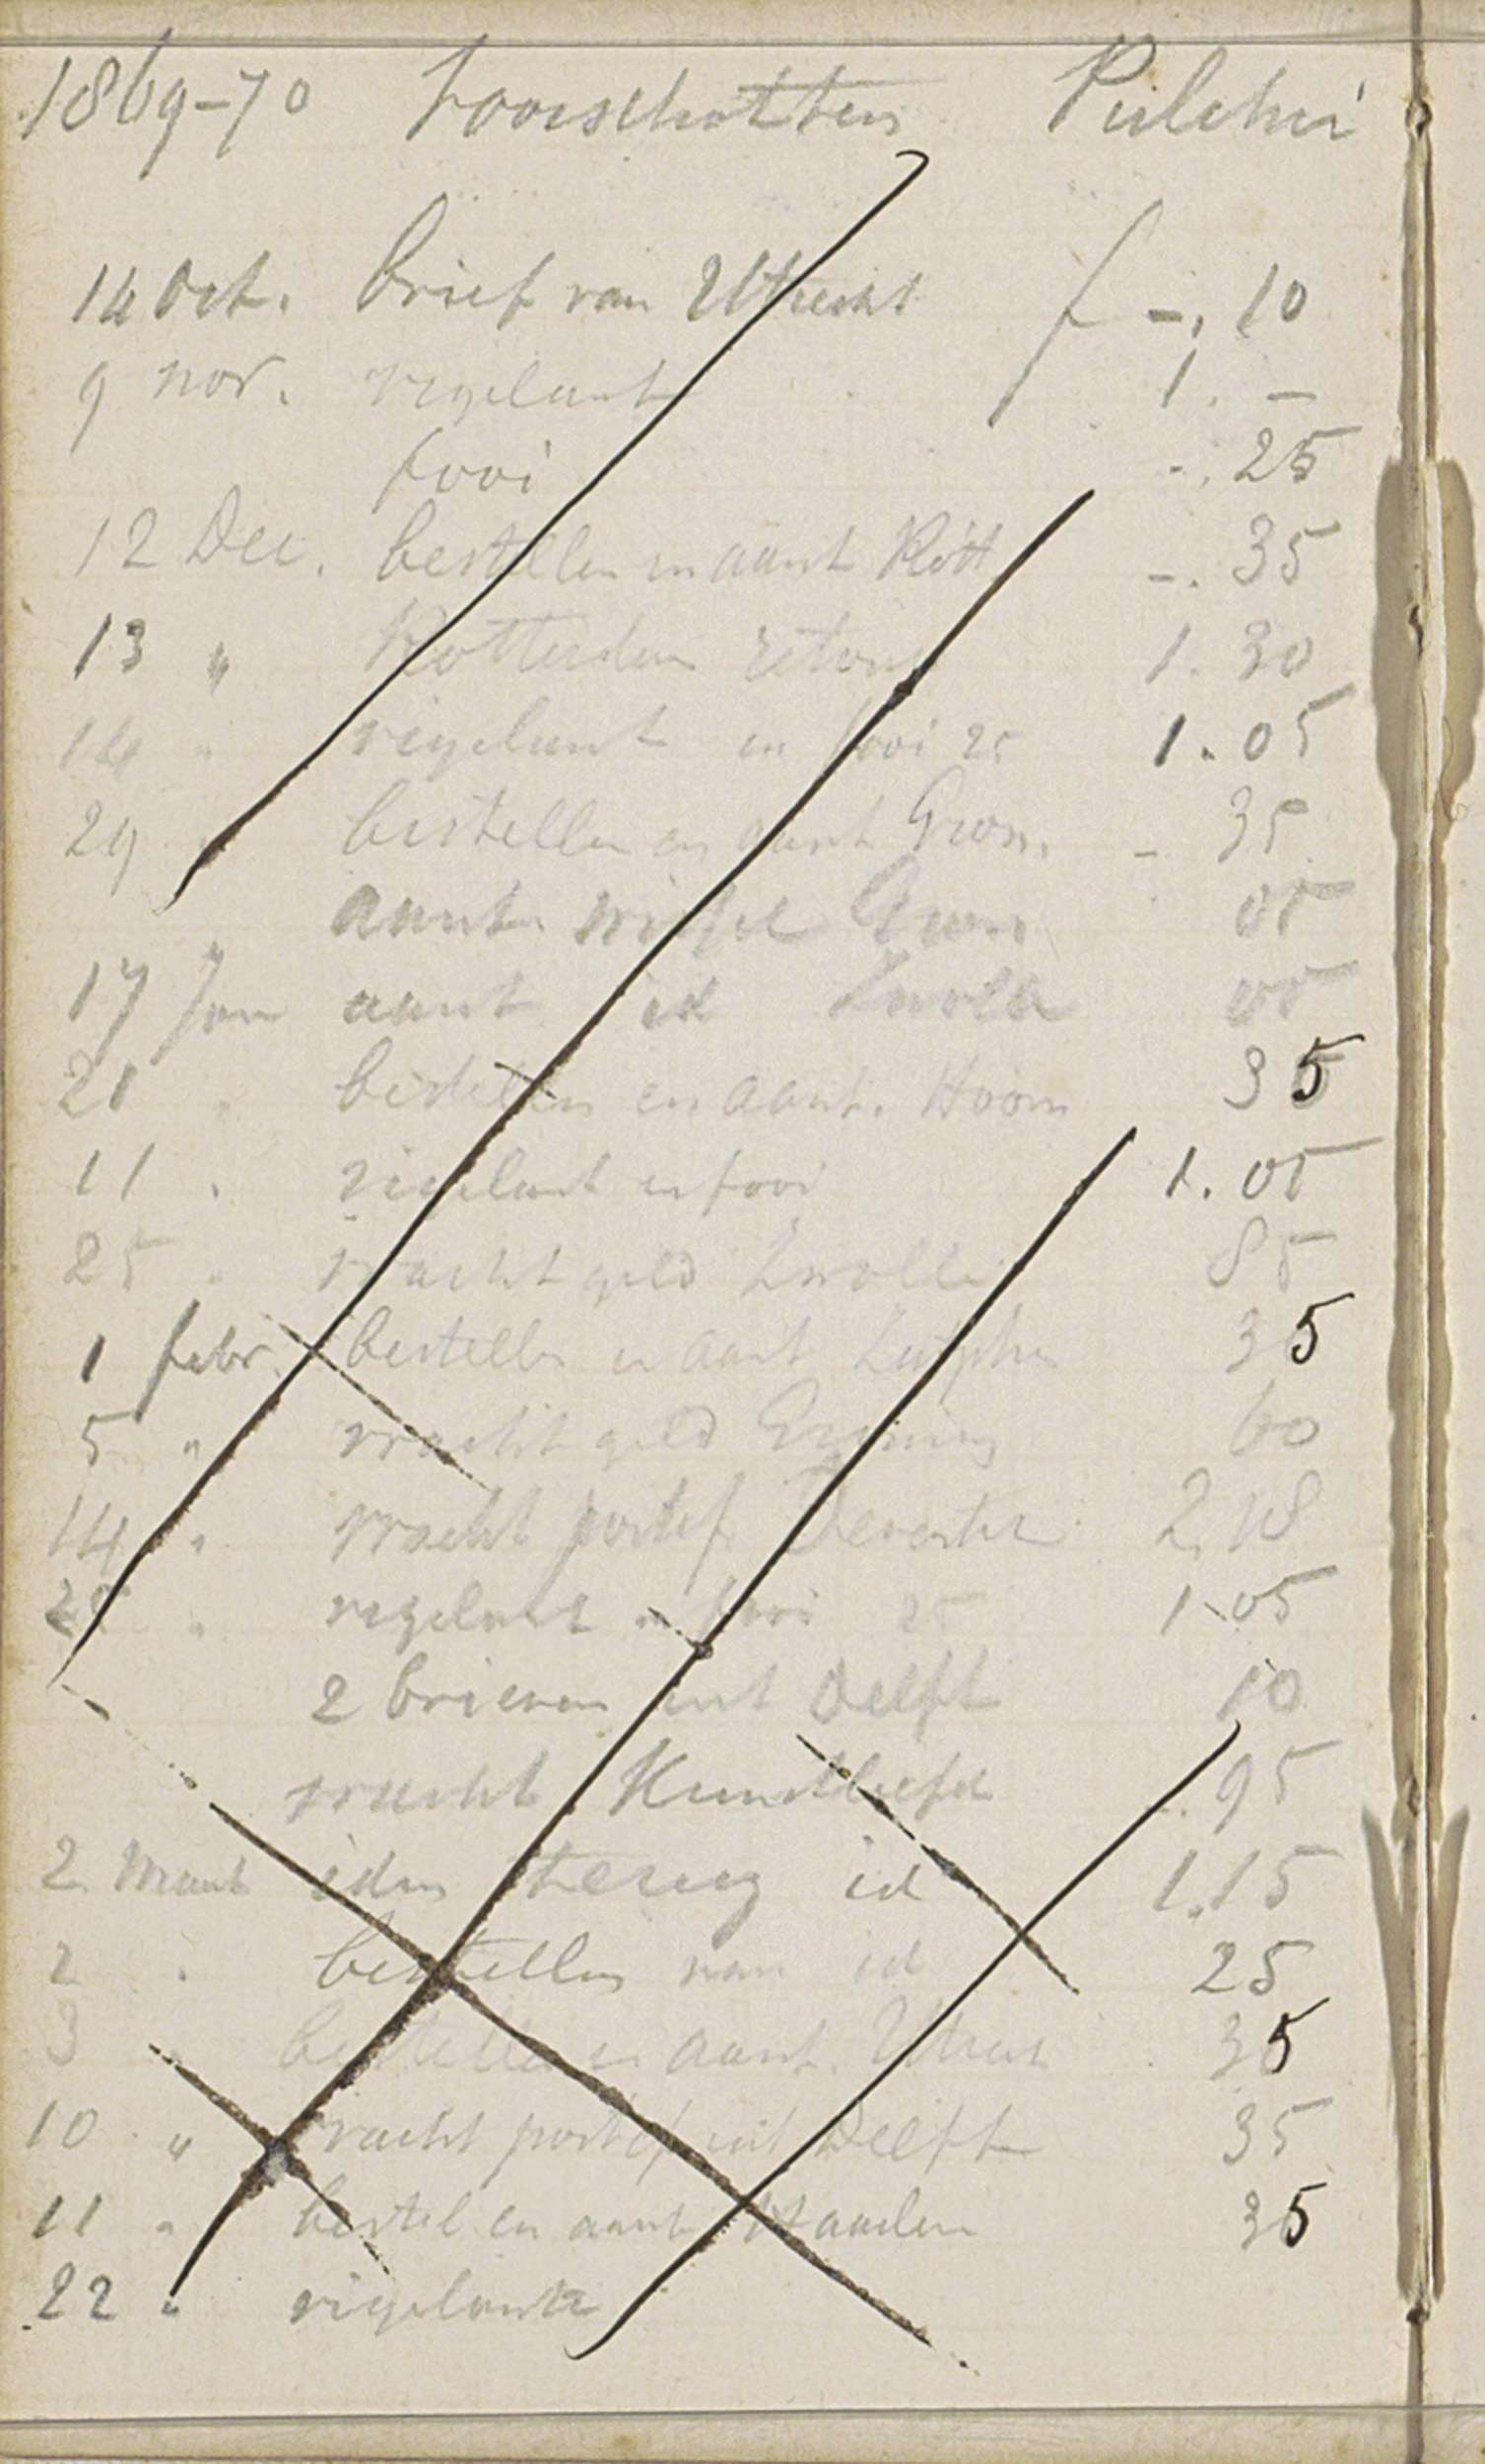 1869-70 Voorschotten Pulchri
14 Oct. brief van Utrecht f -. 10
9 nov. vigelant 1. -
fooi -. 25
12 Dec. bestellen en aant Rott -. 35
13 " Rotterdam retour 1. 30
14 " vigelant en fooi 25 1. 05
29 " bestellen en aant Gron. - 35
aant Gron 05
17 Jan aant id Zwolle 05
21 " bestellen en aant. Hoorn 35
11 " vigelant en fooi 1. 05
25 " vracht geld Zwolle 85
1 febr. bestellen en aant Zutphen 35
5 " vracht geld 60
14 " vracht portef Deventer 2,
" vigelant en fooi 25 1.05
2 brieven uit Delft 10
vracht Kunstliefde -. 95
2 Maart idem terug id 1.15
2 " bestellen van id 25
3 " bestellen en aant. Utrecht 35
10 " vracht portef uit Delft 35
11 " bestel en aant Haarlem 35
22 " vigelante